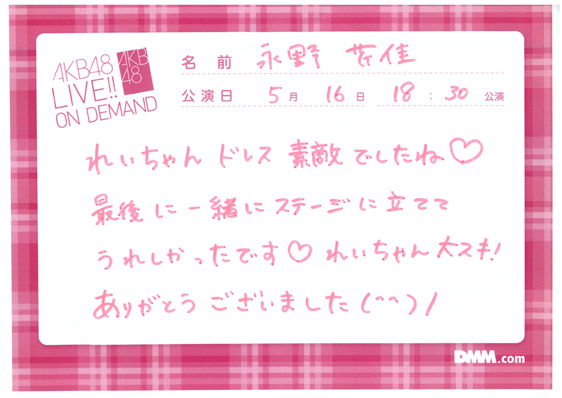 AKB48
LIVE!!
ON DEMAND
AKB
48
名前 永野 芹佳
公演日 5月 16日 18:30 公演
れいちゃん ドレス 素敵でしたね♡
最後に一緒にステージに立てて
うれしかったです♡ れいちゃん大スキ!
ありがとうございました(^^)/
DMM.com